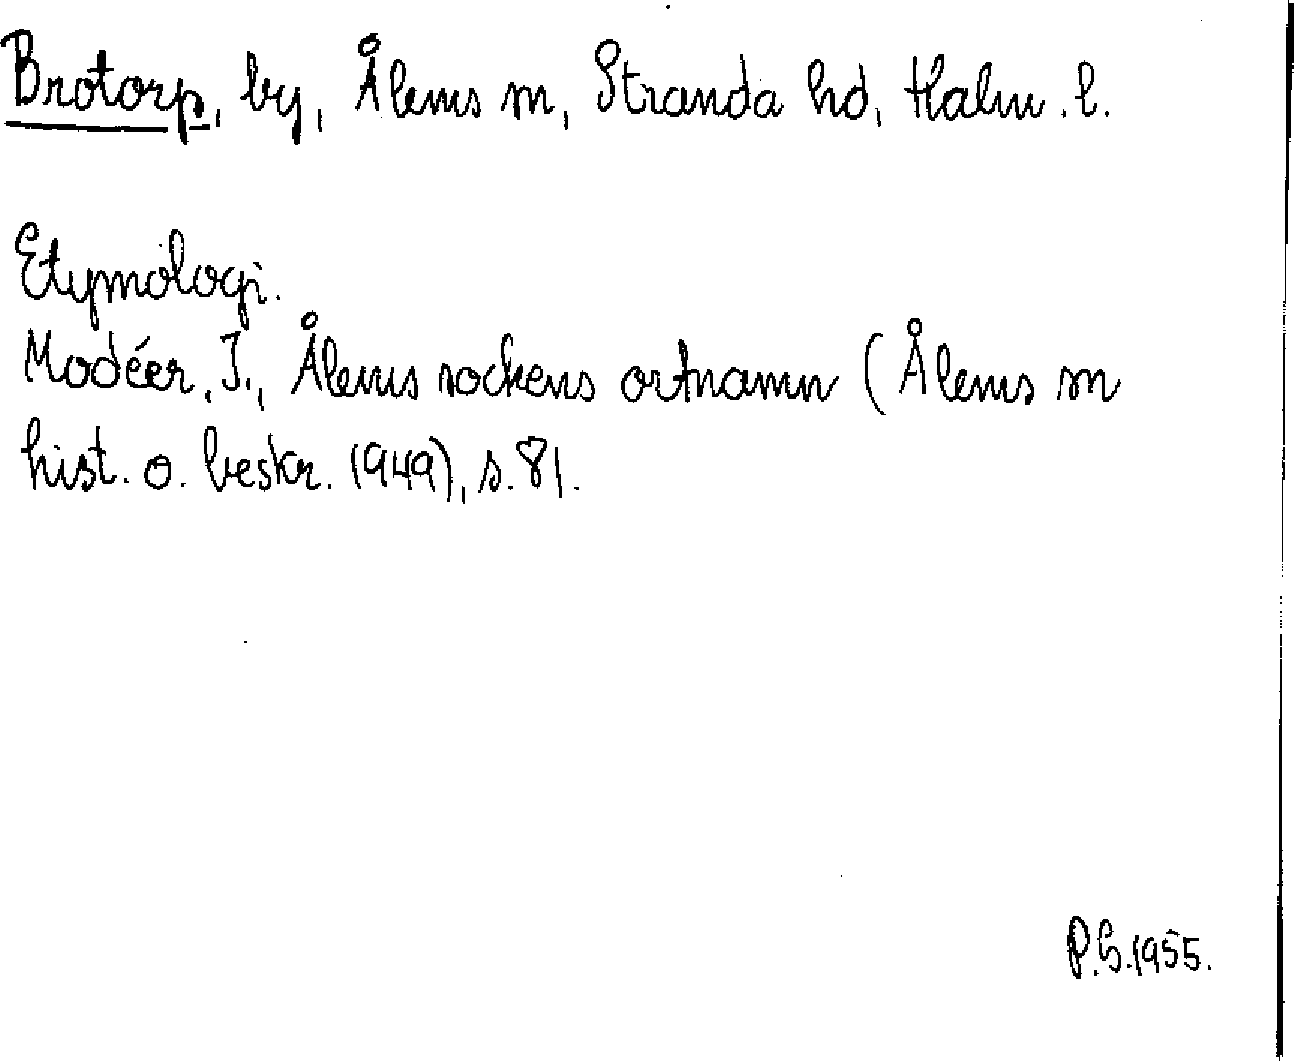 Brotorp, by, Ålems sn, Stranda hd, Kalm. l.
Etymologi.
Modéer, I., Ålems sockens ortnamn (Ålems sn
hist. o. beskr. 1949), s. 81.
P.G. 1955.